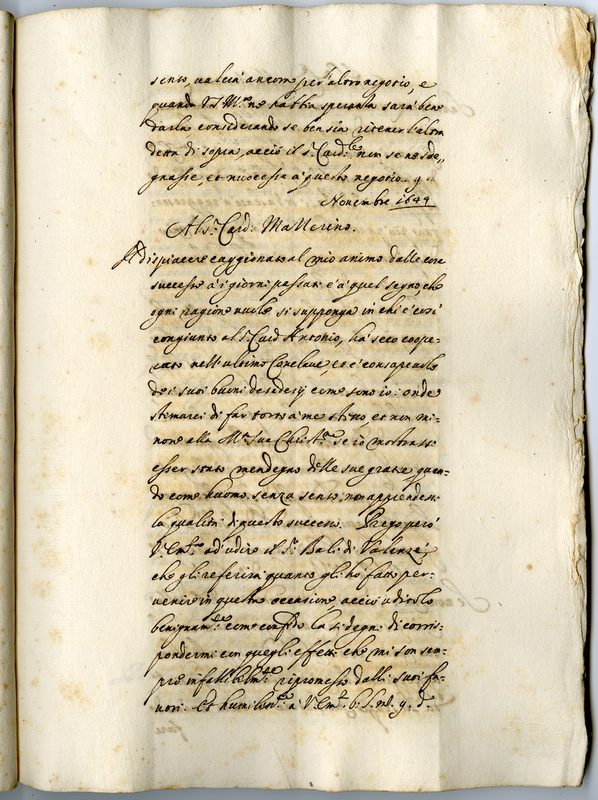 sento, valerà ancora per altro negotio, e
quando V.S. Ill.ma ne habbia speranza sarà bene
darla considerando se ben sia ritener l'altra
detta di sopra, acciò il s.r Card.le non se ne sde,,
gnasse, et nuocesse à questo negotio. g.
Novembre 1644
Al s.r Card: Mazzerino.
Il Dispiacere caggionato al mio animo dalle cose
successe à i giorni passati è à quel segno, che
ogni ragionevole si supponga in chi è così
congiunto al s.r Card Antonio, hà seco coope-
rato nell'ultimo Conclave, et è consapevole
de i suoi buoni desiderij come sono io: onde
stimarei di far torto à me stesso, et non mi-
nore alla M.tà Sua Christ.ma se io mostrassi
esser stato men degno delle sue gratie quan-
do come huomo senza senso, non apprendessi
la qualità di questo successo. Prego però
V. Em.za ad udire il S.r Balì di Valenzè,
che gli referirà quanto gli hò fatto per-
venire in questa occasione, acciò uditolo
benignam.te come confido la si degni di corris-
pondermi con quegli effetti che mi son sem-
pre infallibilm.te ripromesso dalli suoi fa-
vori. Et humilm.te à V. Em.za b. l. m. g. d.